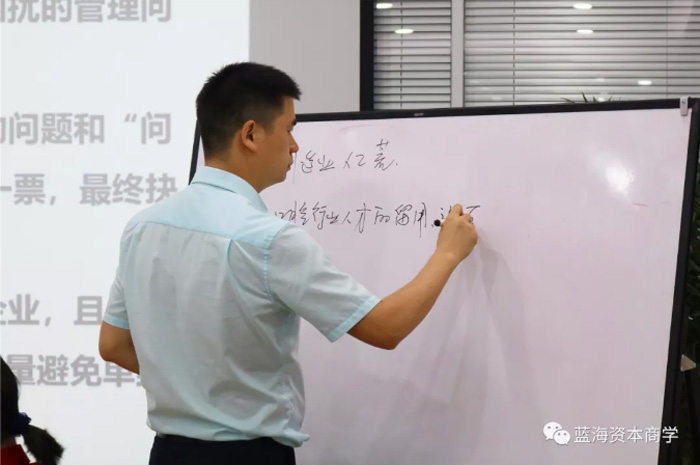 扰的管理问
问题和“问
一票，最终抉
企业，且
量避免单
造业人工荒.
行业人才的留用
蓝海资本商学